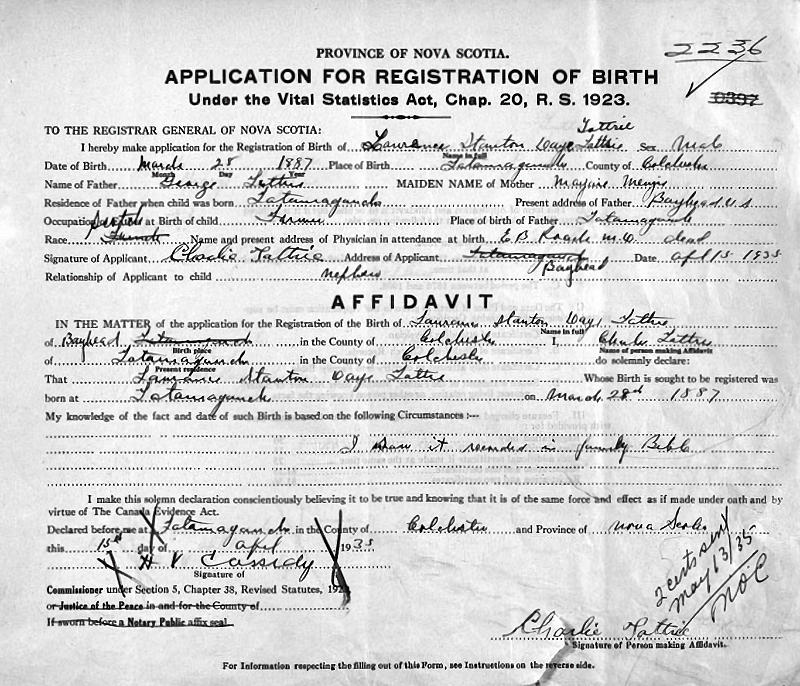 2236
PROVINCE OF NOVA SCOTIA.
APPLICATION FOR REGISTRATION OF BIRTH
0397
Under the Vital Statistics Act, Chap. 20, R. S. 1923.
TO THE REGISTRAR GENERAL OF NOVA SCOTIA:
Tattrie
I hereby make application for the Registration of Birth of Laurence Stanton Daye Tattrie Sex Male
Name in full
Date of Birth March 28 1887 Place of Birth Tatamagouche County of Colchester
Month Day Year
Name of Father George Tattrie MAIDEN NAME of Mother
Residence of Father when child was born Tatamagouche Present address of Father Bayhead N.S
Occupation of Father at Birth of child Farmer Place of birth of Father Tatamagouche
Scotch
Race French Name and present address of Physician in attendance at birth E B Roach M.D. dead
Signature of Applicant Charlie Tattrie Address of Applicant Tatamagouche Date Apl 15 1935
Bayhead
Relationship of Applicant to child nephew
AFFIDAVIT
IN THE MATTER of the application for the Registration of the Birth of Laurence Stanton Daye Tattrie
Name in full
of Bayhead Tatamagouche in the County of Colchester I, Charlie Tattrie
Birth place Name of person making Affidavit
of Tatamagouche in the County of Colchester do solemnly declare:
Present residence
That Laurence Stanton Daye Tattrie Whose Birth is sought to be registered was
born at Tatamagouche on March 28th 1887
My knowledge of the fact and date of such Birth is based on the following Circumstances :--
I saw it recorded in family Bible
I make this solemn declaration conscientiously believing it to be true and knowing that it is of the same force and effect as if made under oath and by
virtue of The Canada Evidence Act.
Declared before me at Tatamagouche in the County of Colchester and Province of Nova Scotia
this 15th day of April 1935
H V Cassidy
Signature of
Commissioner under Section 5, Chapter 38, Revised Statutes, 192
or Justice of the Peace in and for the County of
If sworn before a Notary Public affix seal
2 certs sent
May 13/35
Charlie Tattrie
Signature of Person making Affidavit.
For Information respecting the filling out of this Form, see Instructions on the reverse side.